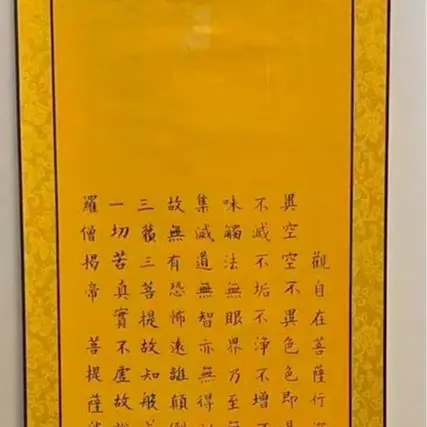 觀自在菩薩行
異空空不異色色即
不滅不垢不淨不增不
味觸法無眼界乃至
集滅道無智亦無得
故無有恐怖遠離顛
三藐三菩提故知般
一切苦真實不虛故
羅僧揭帝 菩提薩